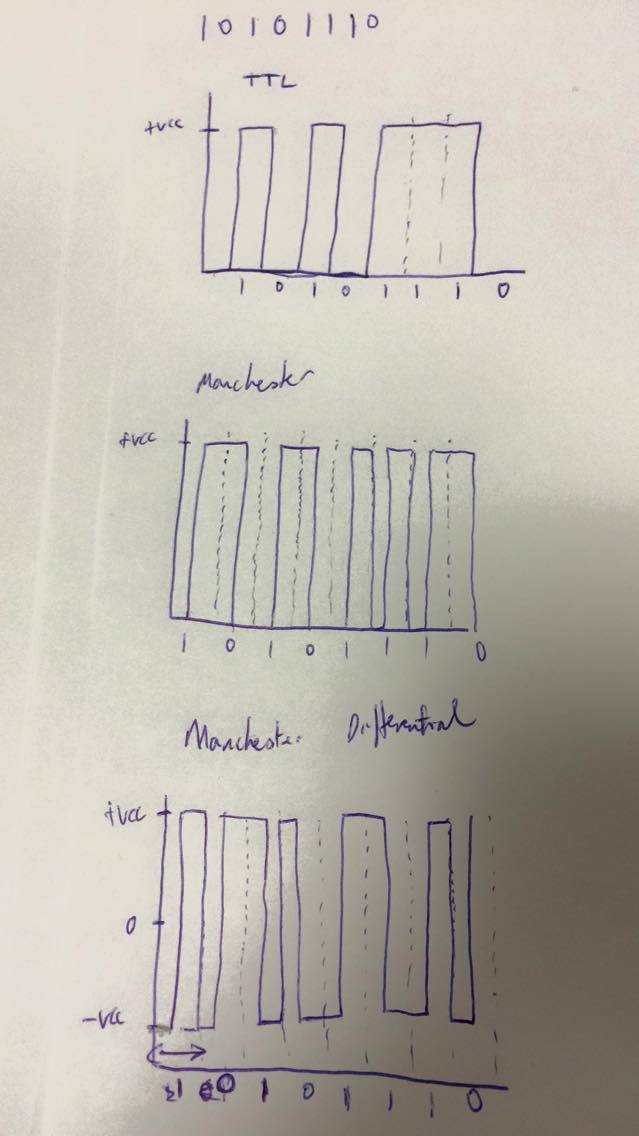 10101110
TTL
+VCC
1 0 1 0 1 1 1 0
Manchester
+VCC
1 0 1 0 1 1 1 0
Manchester Differential
+VCC
0
-VCC
1 0 1 0 1 1 1 0